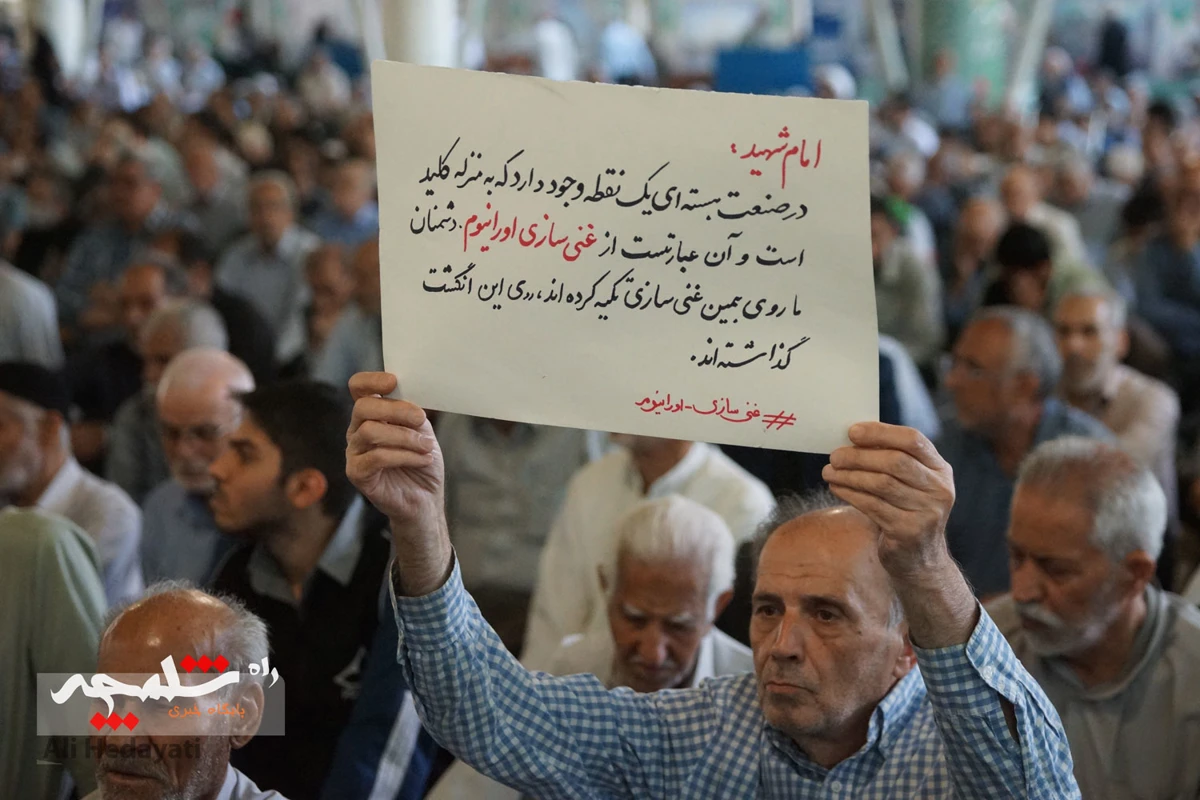 امام شهید:
در صنعت هسته ای یک نقطه وجود دارد که به منزله کلید
است و آن عبارتست از غنی سازی اورانیوم. دشمنان
ما روی همین غنی سازی تکیه کرده اند، روی این انگشت
گذاشته اند.
#غنی سازی-اورانیوم
راه شلمچه
پایگاه خبری
Ali Hedayati